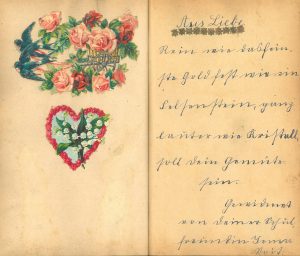 Aus Liebe
Rein wie das fein
ste Gold fest wie ein
Felsenstein, ganz
lauter wie Kristall
soll dein Gemüte
sein.
Gewidmet
von deiner Schul
freundin